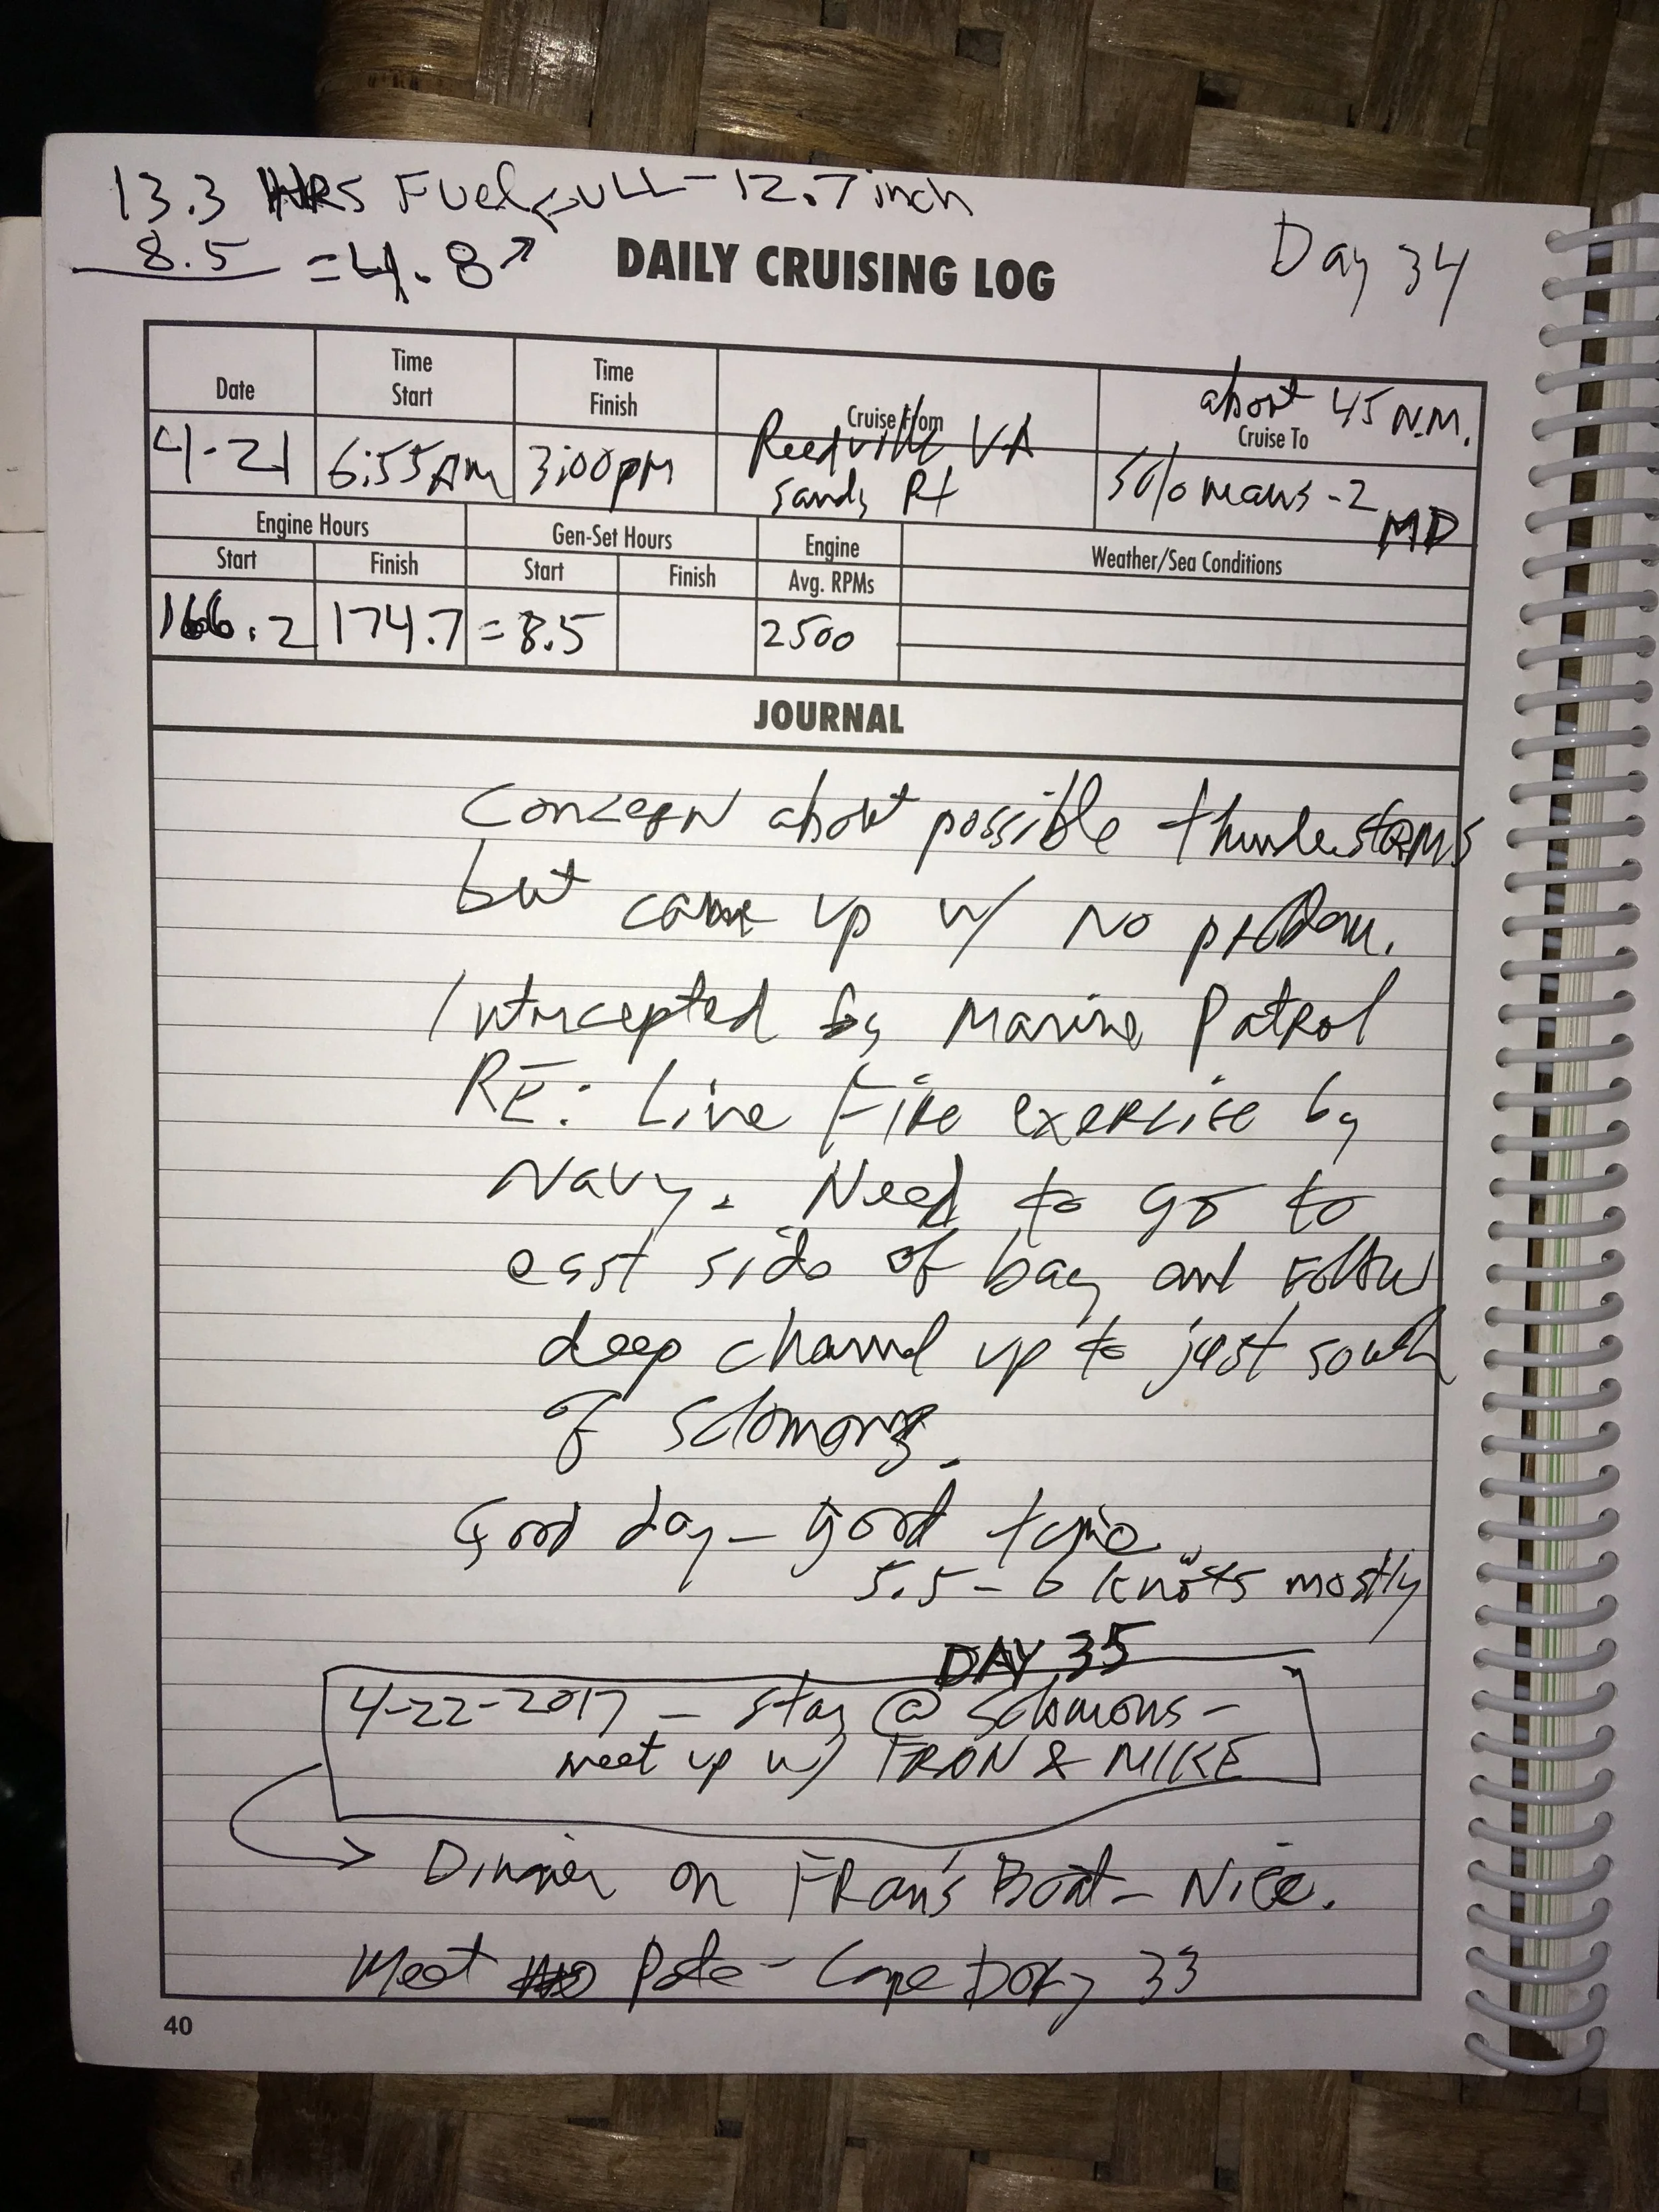 13.3 HRS Fuel FULL - 12.7 inch
8.5 = 4.8 ↗
DAILY CRUISING LOG
Day 34
Date
Time Start
Time Finish
Cruise From
about 45 N.M.
Cruise To
4-21
6:55 AM
3:00 pm
Reedville VA
Sandy Pt
Solomans - 2
MD
Engine Hours
Gen-Set Hours
Engine
Avg. RPMs
Weather/Sea Conditions
Start
Finish
Start
Finish
166.2
174.7
= 8.5
2500
JOURNAL
Concern about possible thunderstorms
but came up w/ no problem.
Intercepted by Marine Patrol
RE: Live Fire exercise by
Navy. Need to go to
east side of bay and follow
deep channel up to just south
of Solomons.
Good day - good time.
5.5 - 6 knots mostly
DAY 35
4-22-2017 - stay @ Solomons -
meet up w/ FRAN & MIKE
→ Dinner on FRan's Boat - Nice.
Meet Pete - Cape Dory 33
40